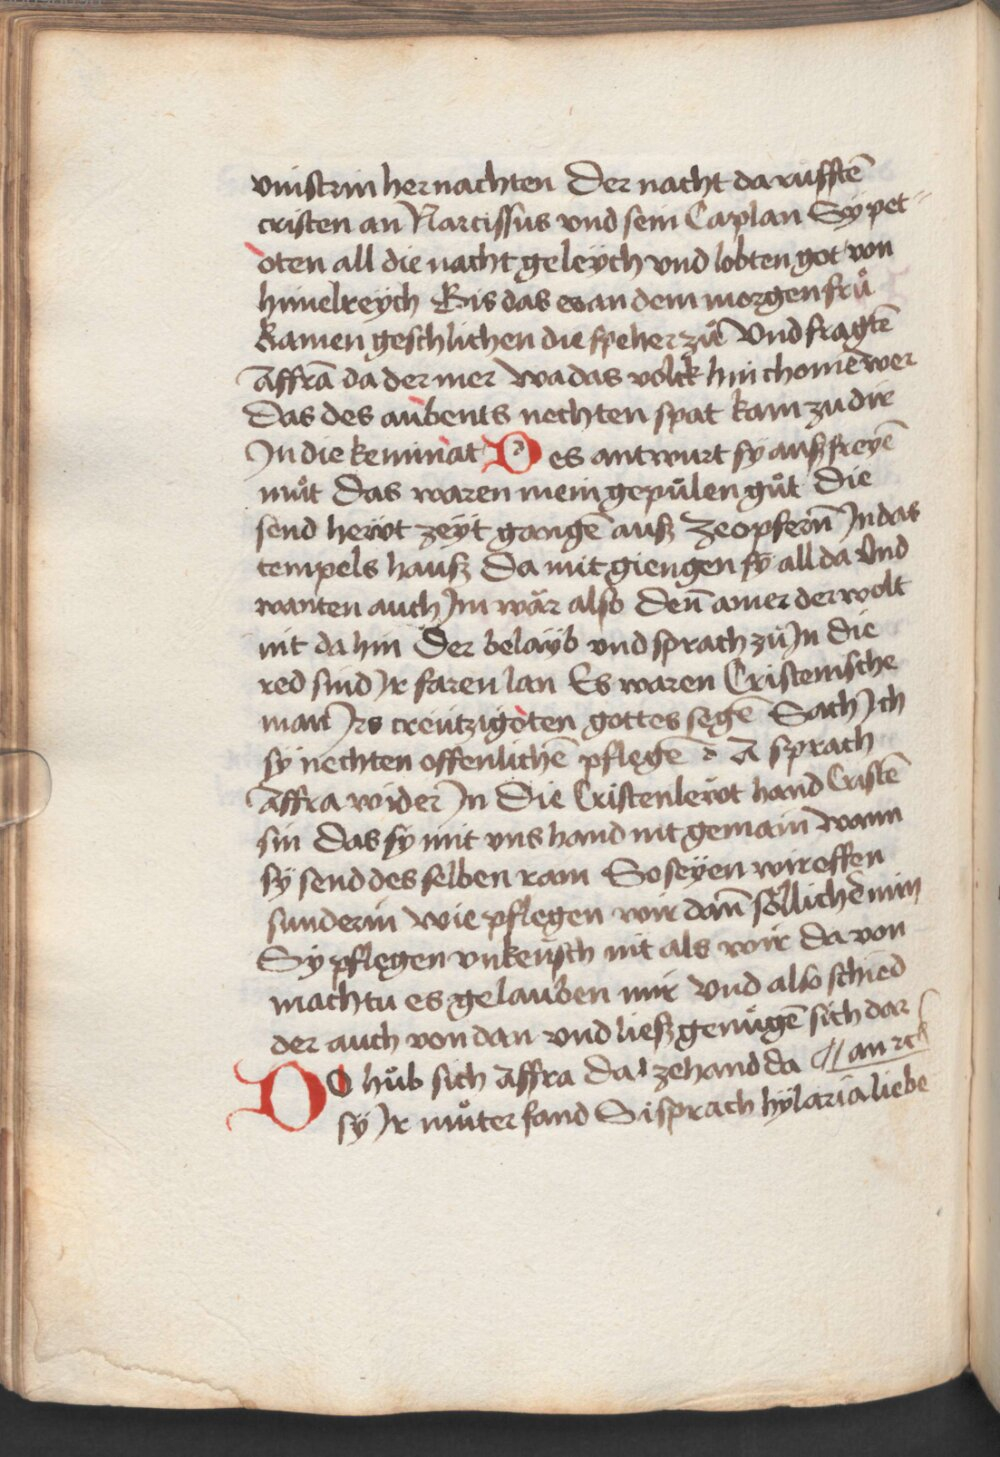 vinstrin her nachten Der nacht da růfftē
cristen an Narcissus vnd sein Caplan Sy pet=
oten all die nacht geleych vnd lobten got von
himelreych Bis das es an dem morgen frů
kamen geschlichen die speher zů Vnd fragtē
Affrā da der mer Wa das volck hin chomē wer
Das des aubents nechten spat kam zu dir
In die keminat Des antwurt sy auß freyē
můt Das waren mein gepůlen gůt Die
send hewt zeyt gangē auß Ze opfern̄ In das
tempels hauß Da mit giengen sy all da Vnd
wanten auch Im wår also Den̄ ainer der wolt
nit da hin Der belayb vnd sprach zů In die
red sind Ir faren lan Es waren Cristenische
man Irs creützigoten gottes segē Sach Ich
sy nechten offenlichē pflegē A sprach
Affra wider In Die Cristen lewt hand Cristē
sin Das sy mit vns hand nit gemain Wann
sy send des selben rain So seyen wir offen
sunderin Wie pflegen wir dan̄ söllichē min
Sy pflegen vnkeüsch nit als wir Da von
machtu es gelauben mir Vnd also schied
der auch von dan vnd ließ genůgē sich dar
DO hůb sich Affra Da zehand da // an rc
sy Ir můter fand Si sprach hylaria liebe